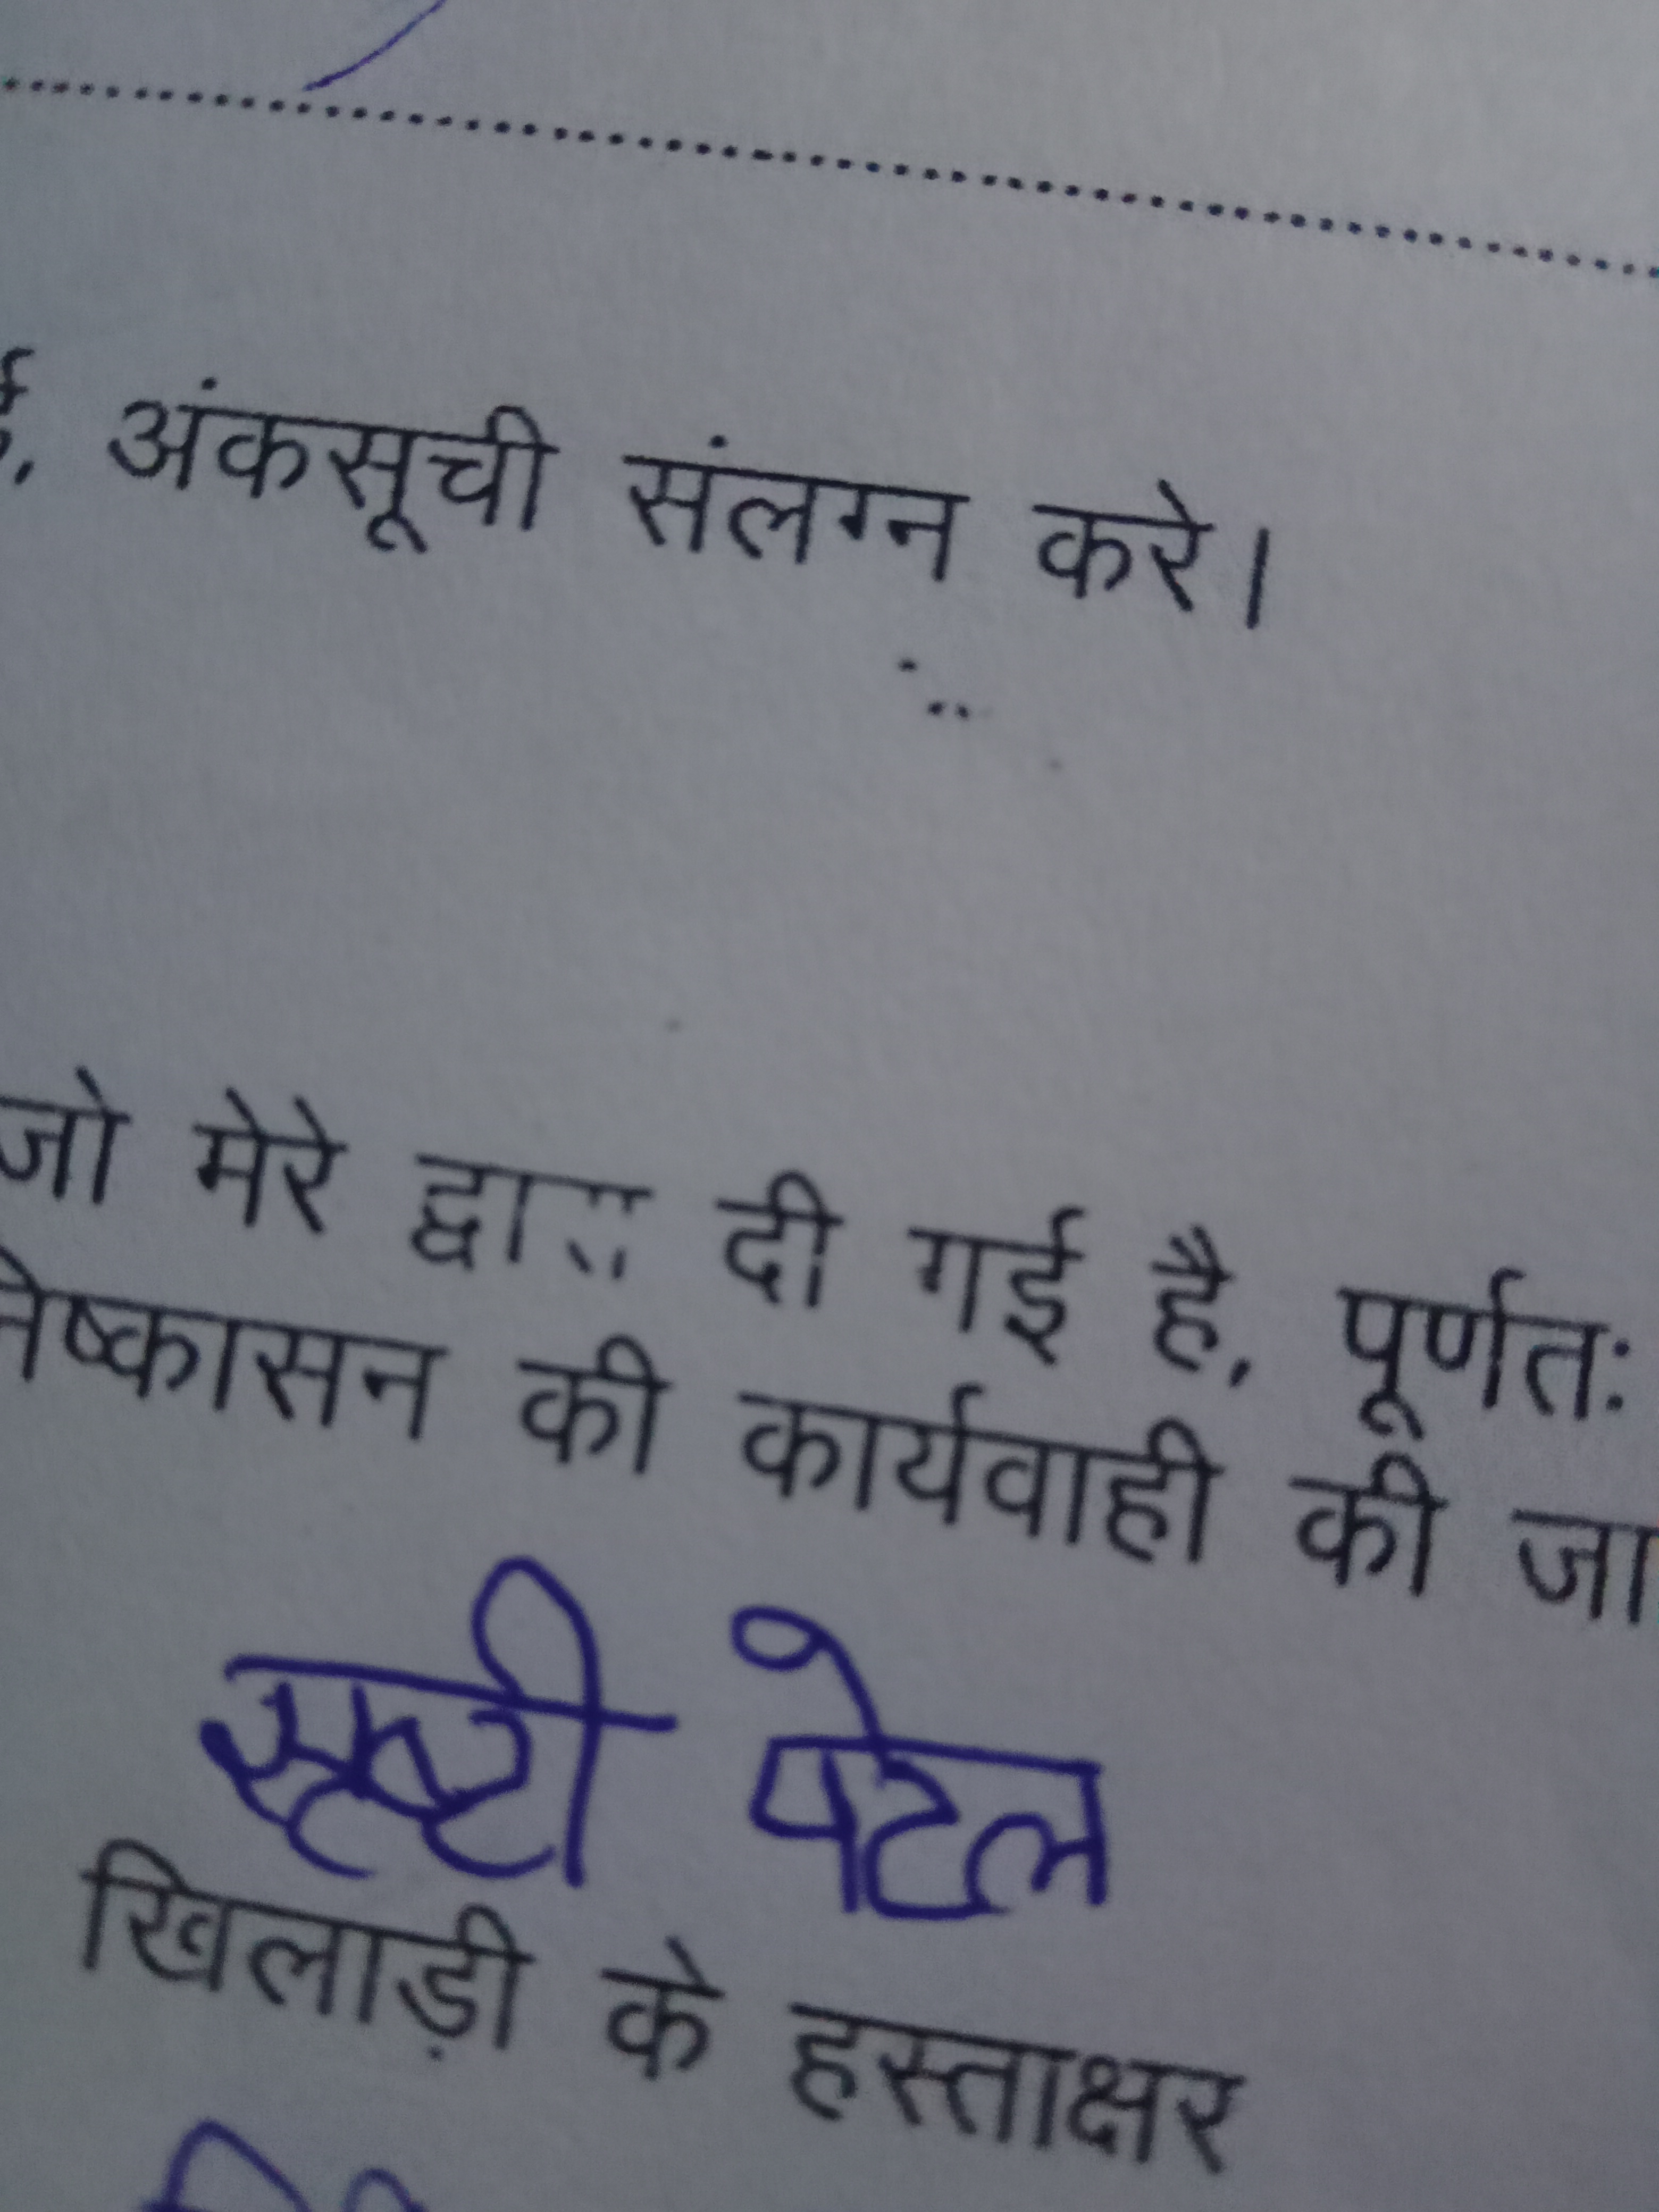 अंकसूची संलग्न करे।
जो मेरे द्वारा दी गई है, पूर्णतः
निष्कासन की कार्यवाही की जा
सृष्टी पटेल
खिलाड़ी के हस्ताक्षर